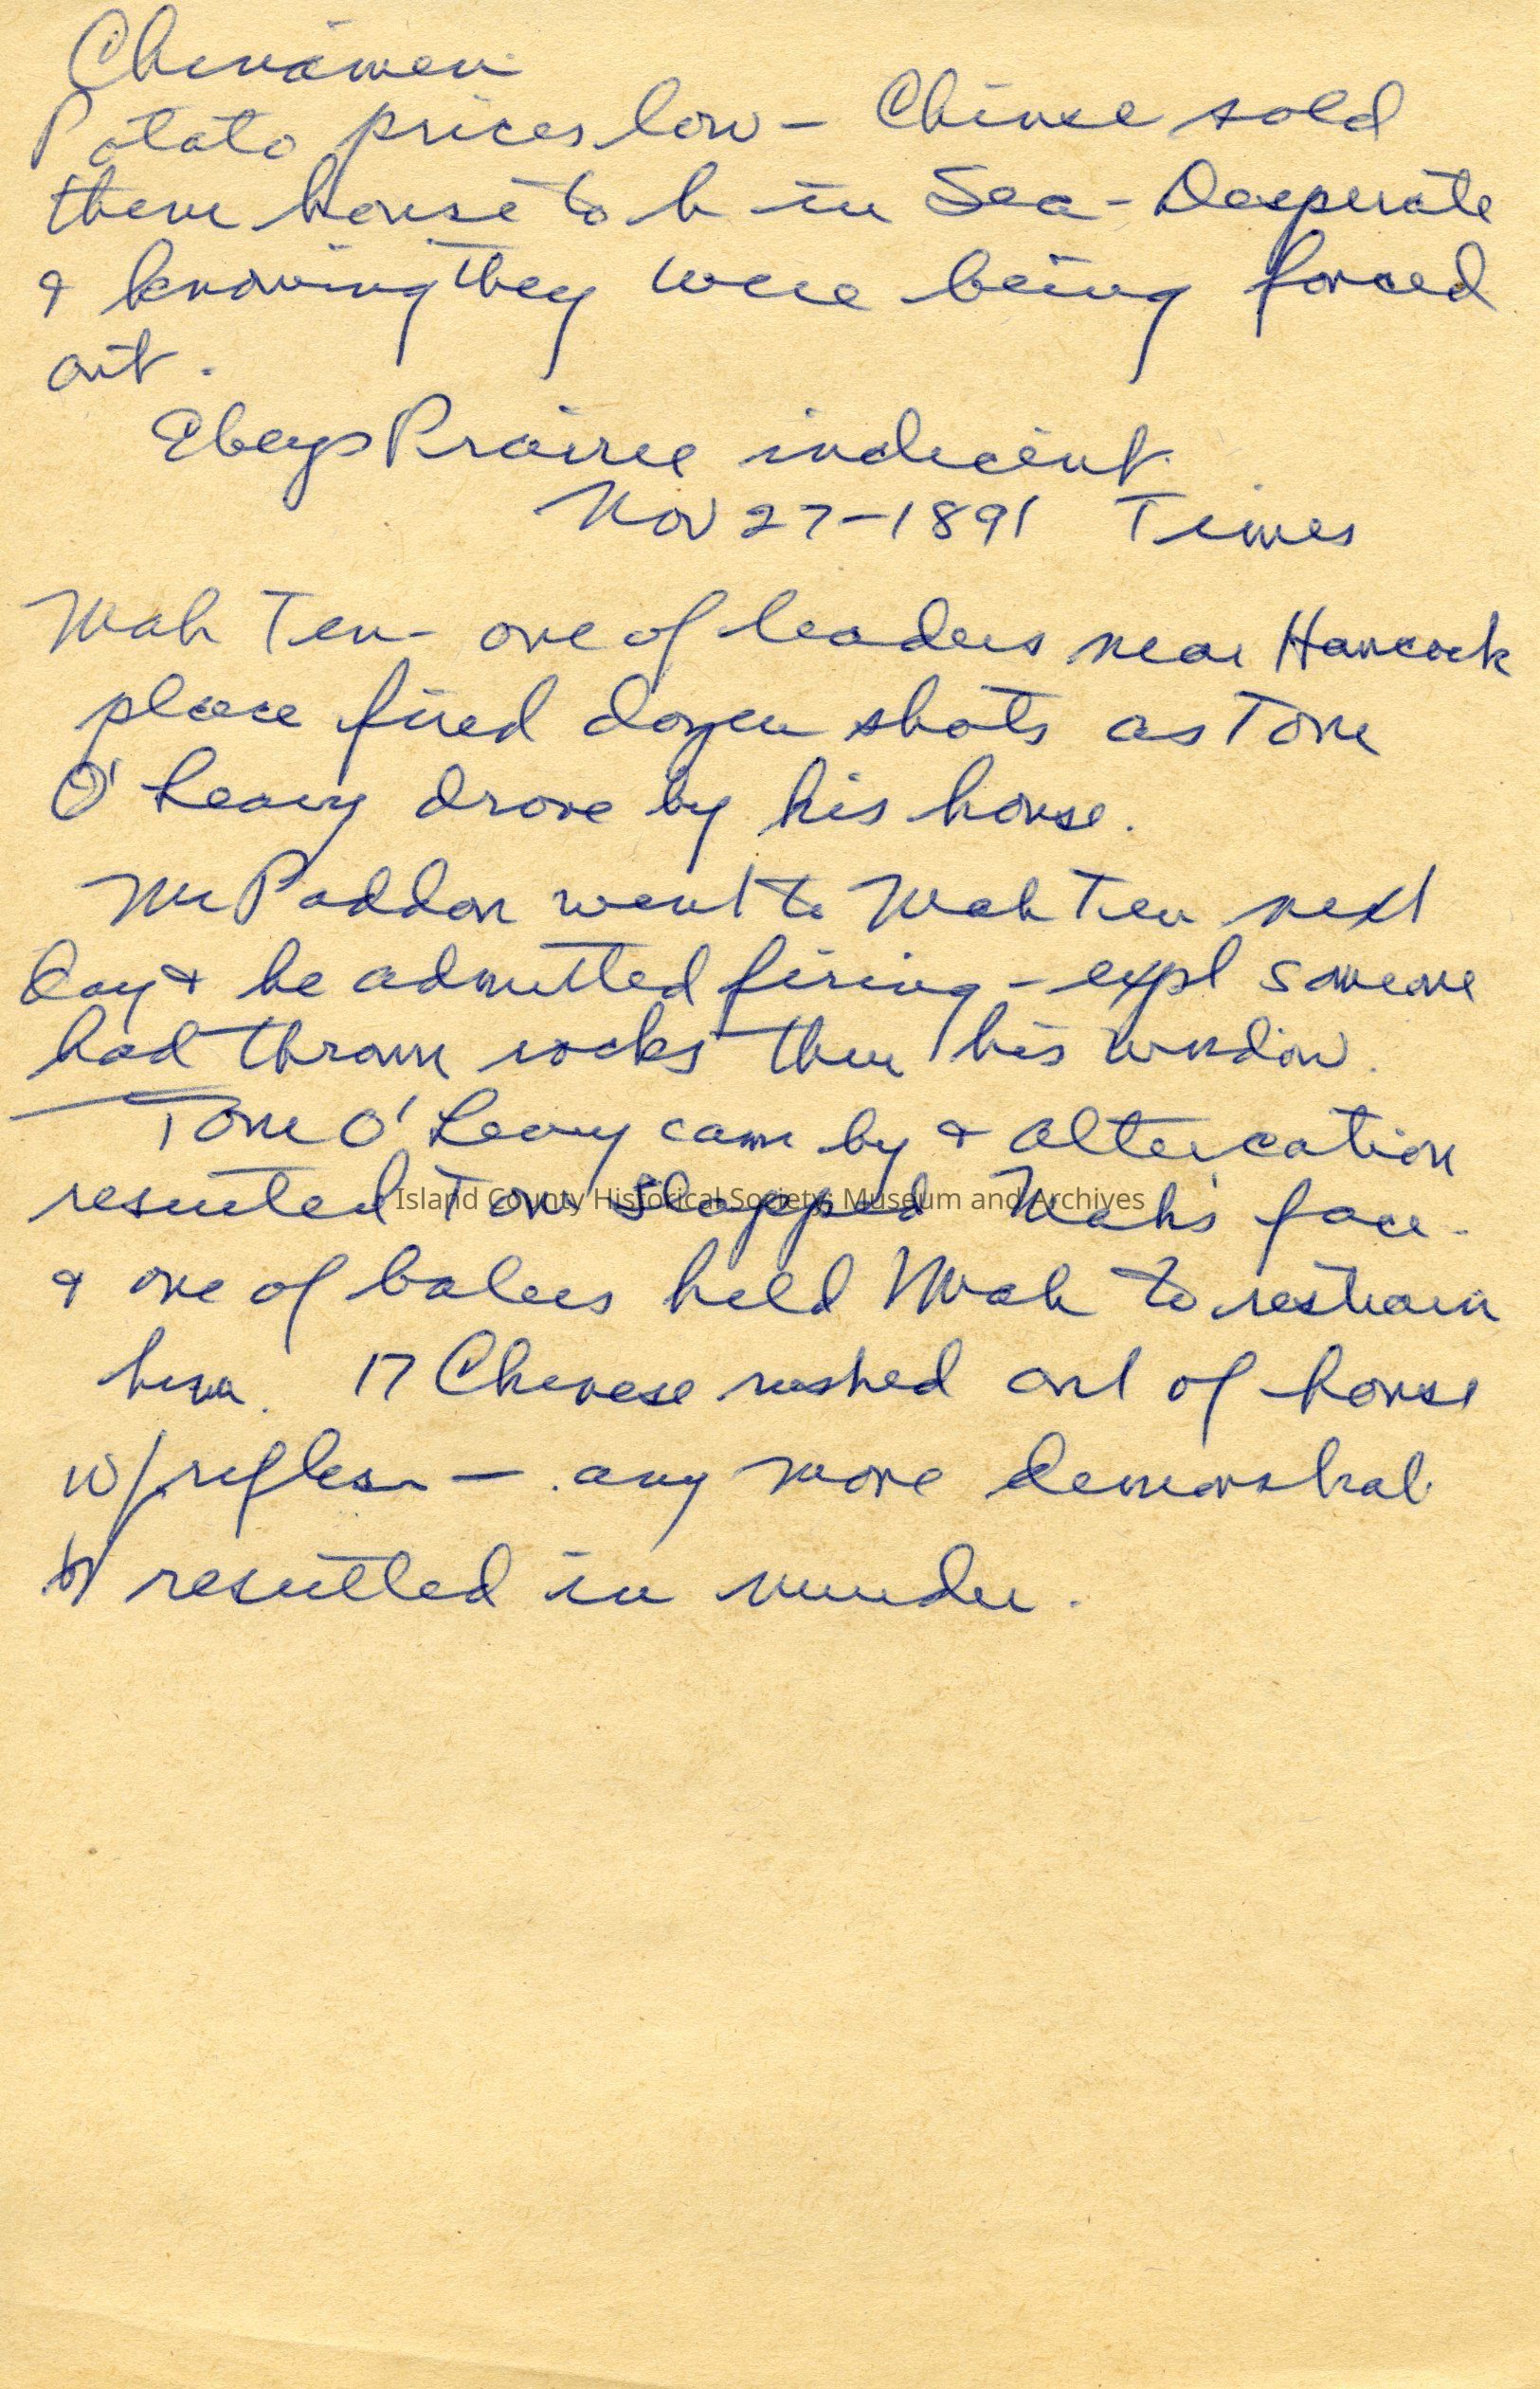 Chinamen
Potato prices low - Chinese sold
them house to h in Sea - Desperate
& knowing they were being forced
out.
Ebeys Prairie indicent
Nov 27-1891 Times
Wah Ten - one of leaders near Hancock
place fired dozen shots as Tom
O'Leary drove by his house.
Mr Paddon went to Wah Ten next
day & he admitted firing - expl someone
had thrown rocks thru his window.
Tom O'Leary came by & altercation
resulted Tom slapped Wah's face -
Island County Historical Society: Museum and Archives
& one of balers held Wah to restrain
him. 17 Chinese rushed out of house
w/rifles - any more demonstrat
resulted in murder.